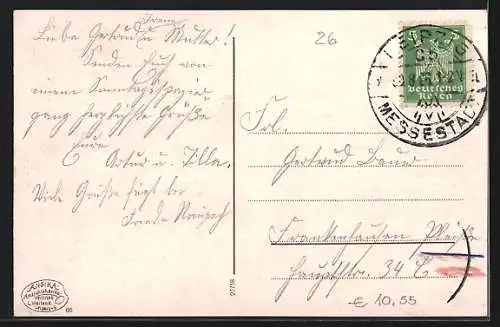 Liebe Gertrud u. Mutter!
Senden Euch von
einem Sonntagsspazier-
gang herzlichste Grüße
Eure
Artur u. Tilla.
Viele Grüße
Frieda
26
LEIPZIG
MESSESTADT
5
Deutsches
Reich
Frl.
Gertrud Bauer
Frankenhausen
Hauptstr. 34
€ 10,55
66